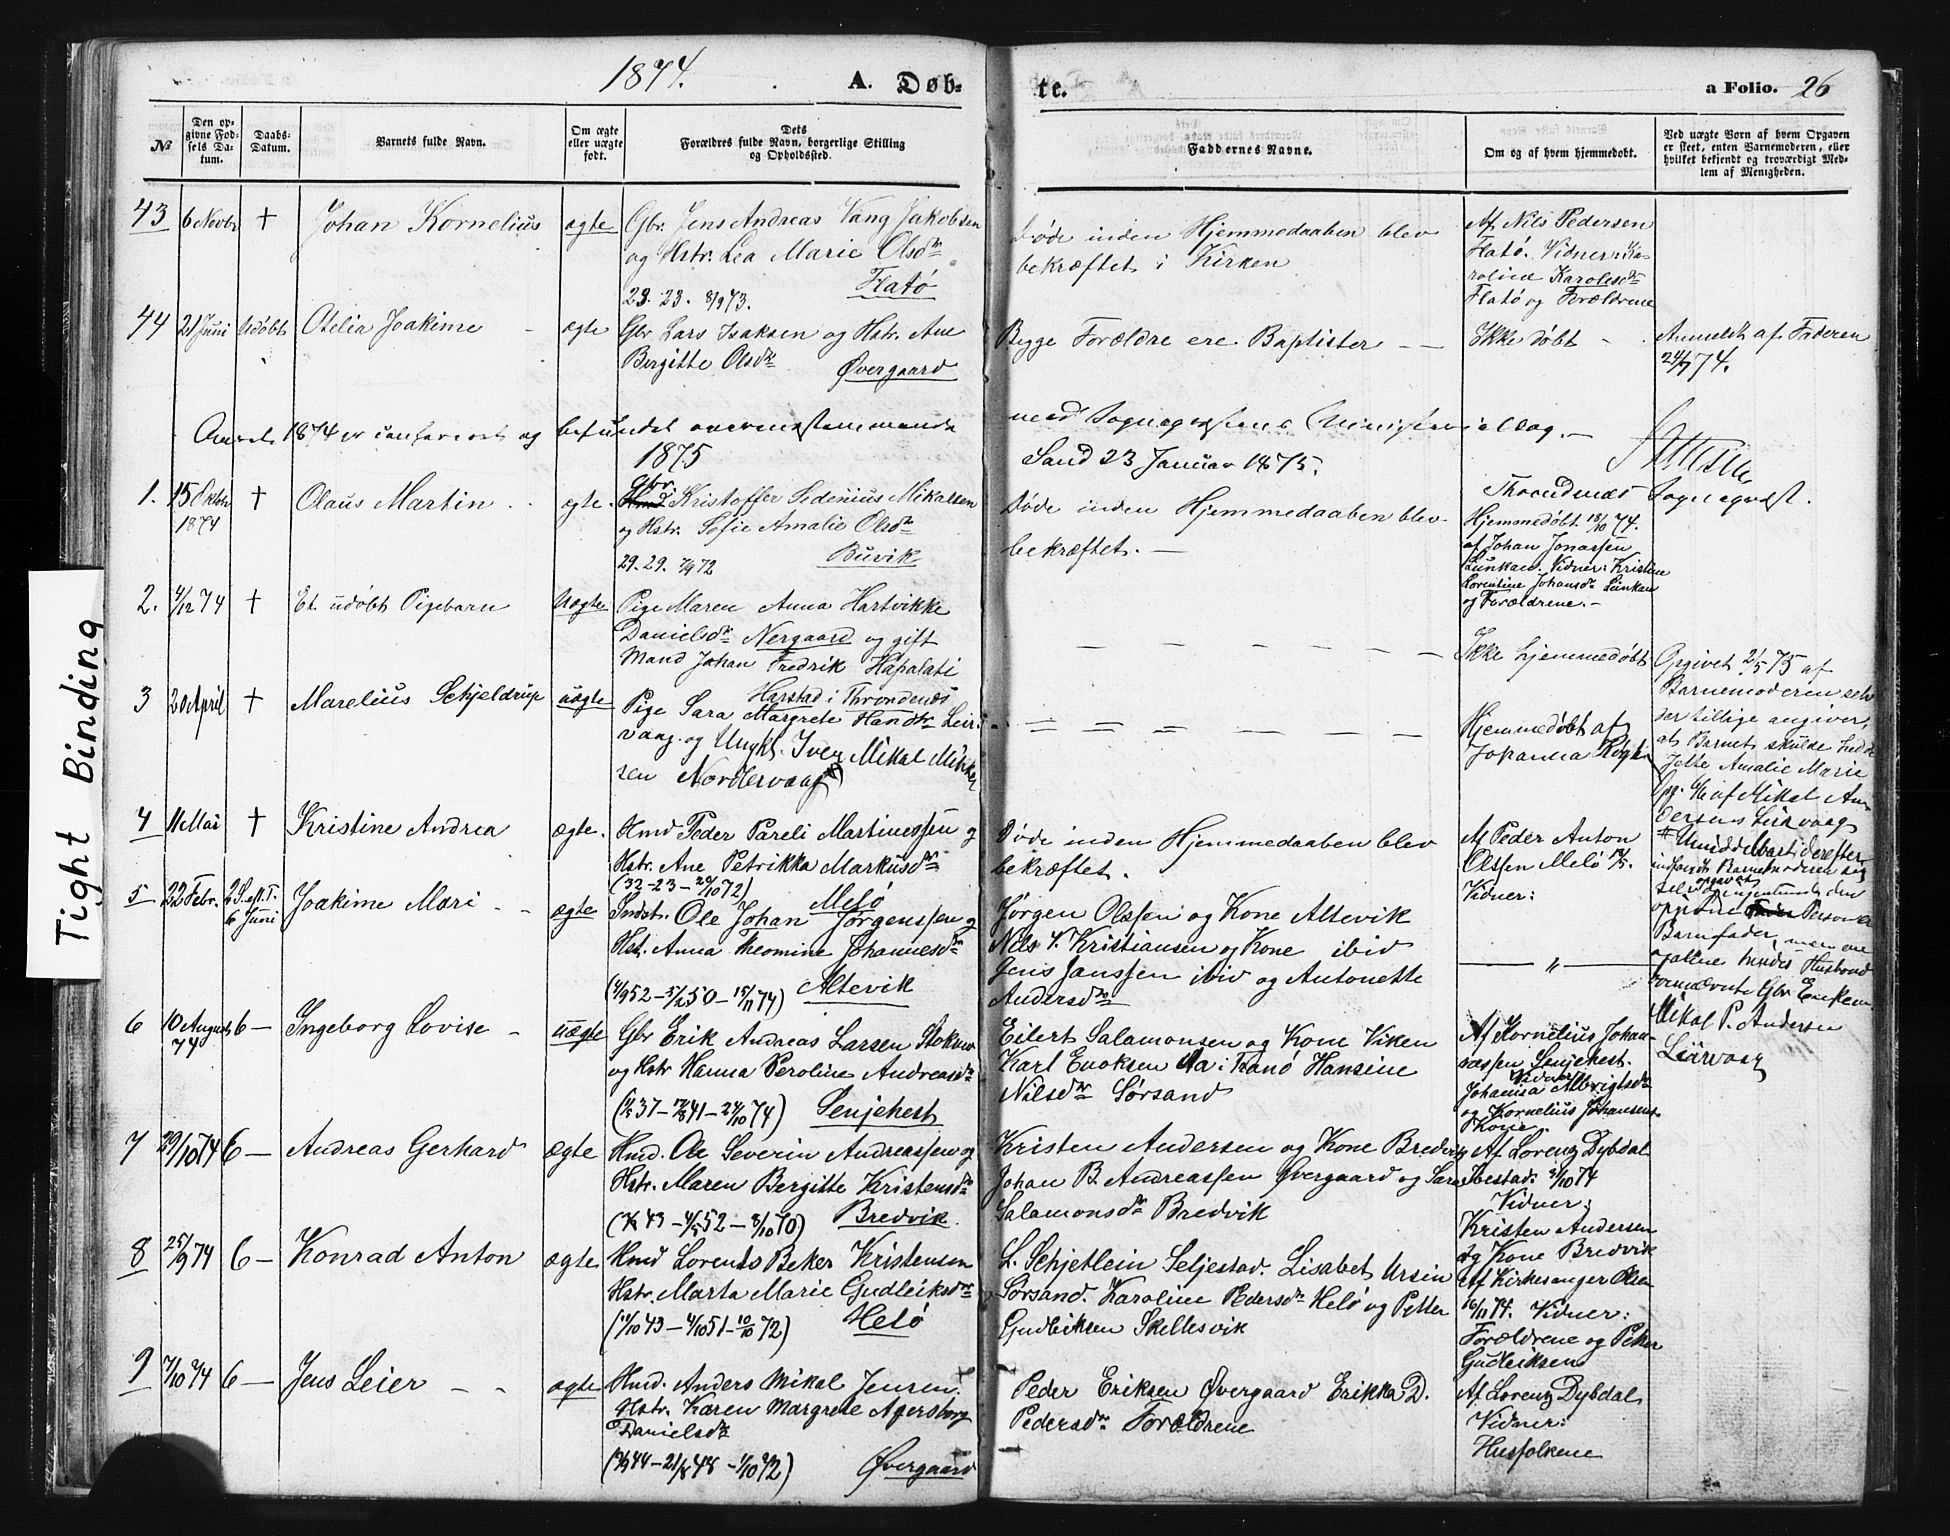 1874.
A. Døb-
te.
a Folio. 26
№
Den op-
givne Fød-
sels Da-
tum.
Daabs-
Datum.
Barnets fulde Navn.
Om ægte
eller uægte
født.
Dets
Forældres fulde Navn, borgerlige Stilling
og Opholdssted.
Faddernes Navne.
Om og af hvem hjemmedøbt.
Ved uægte Børn af hvem Opgaven
er skeet, enten Barnemoderen, eller
hvilket bekjendt og troværdigt Med-
lem af Menigheden.
43 6 Novbr † Johan Kornelius ægte
Gbr. Jens Andreas Vang Jakobsen
og Hstr. Lea Marie Olsdr
Flatö
23. 23. 8/9 73.
Døde inden Hjemmedaaben blev
bekræftet i Kirken
Af Nils Pedersen
Flatö. Vidner: Ka-
roline Karolesdr
Flatö og Forældrene
44 21 Juni Udøbt Otelia Joakime - ægte
Gbr Lars Isaksen og Hstr. Ane
Bergitte Olsdr Øvergaard
Begge Forældre ere Baptister — —
Ikke døbt -
Anmeldt af Faderen
24/7 74.
Aaret 1874 er confereret og befundet overensstemmende
med Sogneprestens Ministerialbog. —
1875
Sand 23 Januar 1875.
Throndenæs Sogneprest.
1. 15 Oktbr
1874 † Olaus Martin - - ægte.
Gbr.
Kristoffer Sedenius Mikalsen
og Hstr. Sofie Amalie Olsdr
29. 29. 7/9 72 Buvik
Døde inden Hjemmedaaben blev
bekræftet. —
Hjemmedøbt 18/10 74.
af Johan Jonassen
Lunkan. Vidner: Kristen
Lorentine Johansdr Lunkan
og Forældrene. —
2. 4/12 74 † Et udøbt Pigebarn Uægte
Pige Maren Anna Hartvikke
Danielsdr Nergaard og gift
Mand Johan Fredrik Hapalati
Harstad i Throndenæs
— — — — — —
Ikke hjemmedøbt
Opgivet 2/5 75 af
Barnemoderen selv
der tillige angiver,
at Barnet skulde hedde
Jelse Amalie Marie
3 20 April † Marelius Schjeldrup uægte
Pige Sara Margrete Hansdr Leir-
vaag. og Ungk. Iver Mikal Mikkel-
sen Nordervaag #)
— — — — — —
Hjemmedøbt af
Johanna
Opg. af Mikal An-
dersens Leirvaag
# Umiddelbart derefter
indfandt Barnemoderen sig
selv
opgivne Person er
Barnefader, men
hendes Husbond
Gbr
Mikal P. Andersen
Leirvaag
4 11 Mai † Kristine Andrea ægte.
Hmd Peder Pareli Martinussen og
Hstr. Ane Petrikka Markusdr
(32-23-20/10 72) Melö
Døde inden Hjemmedaaben blev
bekræftet.
Af Peder Anton
Olssen Melö
Vidner:
5 22 Febr. 2 S. e. T.
6 Juni Joakime Mari - - ægte
Indstr. Ole Johan Jørgenssen og
Hst. Anna Theomine Johannesdr
(4/9 52 - 5/12 50 - 15/11 74) Altevik
Jørgen Olssen og Kone Altevik
Nils F. Kristiansen og Kone ibid
Jens Janssen ibid og Antonette
Andersdr
— " —
6 10 August
74 6 — Ingeborg Lovise - uægte
Gbr Erik Andreas Larsen
og Hstr Hanna Peroline Andreasdr
Senjehest
Eilert Salamonsen og Kone Viken
Karl Enoksen Aa i Tranö Hansine
Nilsdr Sørsand
Af Kornelius Johan-
nessen Senjehest.
Vidner
Johanna Albrigtsdr
og Kornelius Johansens
Kone.
7 29/10 74 6 — Andreas Gerhard ægte
Hmd. Ole Severin Andreassen og
Hstr. Maren Bergitte Kristensdr
Bredvik
Kristen Andersen og Kone Bredvik
Johan B. Andreassen Øvergaard og Sara
Salamonsdr Bredvik
Af Lorenz Dybdal
Ibestad: 31/10 74
Vidner:
Kristen Andersen
og Kone Bredvik
8 25/9 74 6 — Konrad Anton ægte
Hmd Lorents Beker Kristensen
Hstr. Marta Marie Gudleiksdr
(11/10 43 - 4/10 51 - 10/10 72) Helö
L. Schjetlein Seljestad. Lisabet Ursin
Sørsand. Karoline Pedersdr Helö og Petter
Gudleiksen Skellesvik
Af Kirkesanger Olsen
16/11 74. Vidner:
Forældrene og Peter
Gudleiksen
9 7/10 74 6 — Jens Leier - - ægte
Hmd. Anders Mikal Jensen.
Hstr. Karen Margrete Agersborg
Danielsdr
Øvergaard
Peder Eriksen Øvergaard Erikka D.
Pedersdr Forældrene
Af Lorenz Dybdal
Vidner:
Husfolkene
Tight Binding